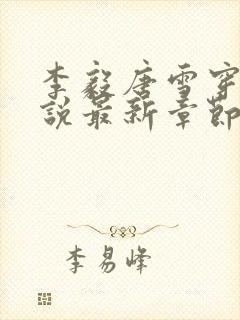 李毅唐雪穿
说最新章节
李易峰